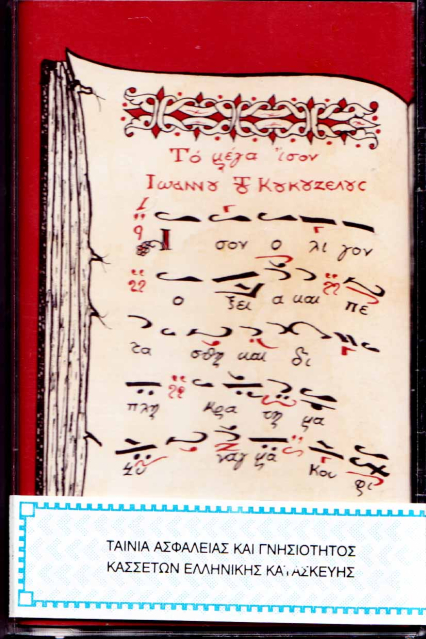 Τό μέγα ἴσον
Ἰωάννου τοῦ Κουκουζέλους
Ισον ο λι γον
ο ξει α και πε
τα σθη και δι
πλη κρα τη μα
κου φι
ΤΑΙΝΙΑ ΑΣΦΑΛΕΙΑΣ ΚΑΙ ΓΝΗΣΙΟΤΗΤΟΣ
ΚΑΣΣΕΤΩΝ ΕΛΛΗΝΙΚΗΣ ΚΑΤΑΣΚΕΥΗΣ